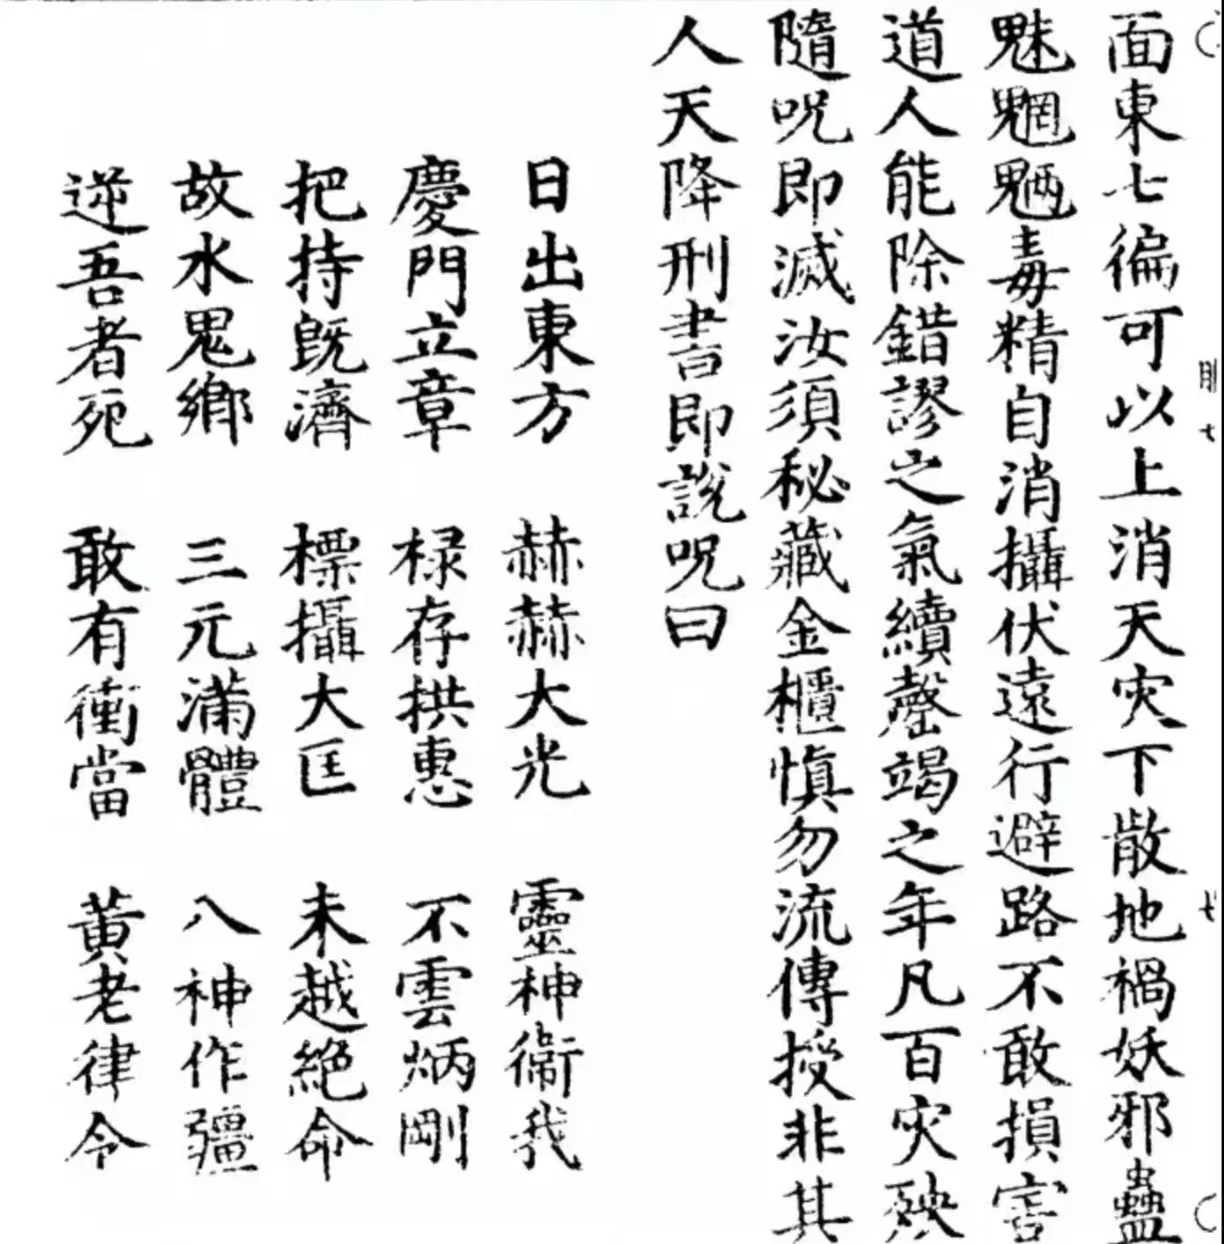 面東七徧可以上消天灾下散地禍妖邪蠱
魅魍魎毒精自消攝伏遠行避路不敢損害
道人能除錯謬之氣續罄竭之年凡百灾殃
隨呪即滅汝須秘藏金櫃慎勿流傳授非其
人天降刑書即說呪曰
日出東方 赫赫大光 靈神衞我
慶門立章 祿存拱惠 不雲炳剛
把持旣濟 標攝大匡 未越絕命
故水鬼鄉 三元滿體 八神作疆
逆吾者死 敢有衝當 黃老律令